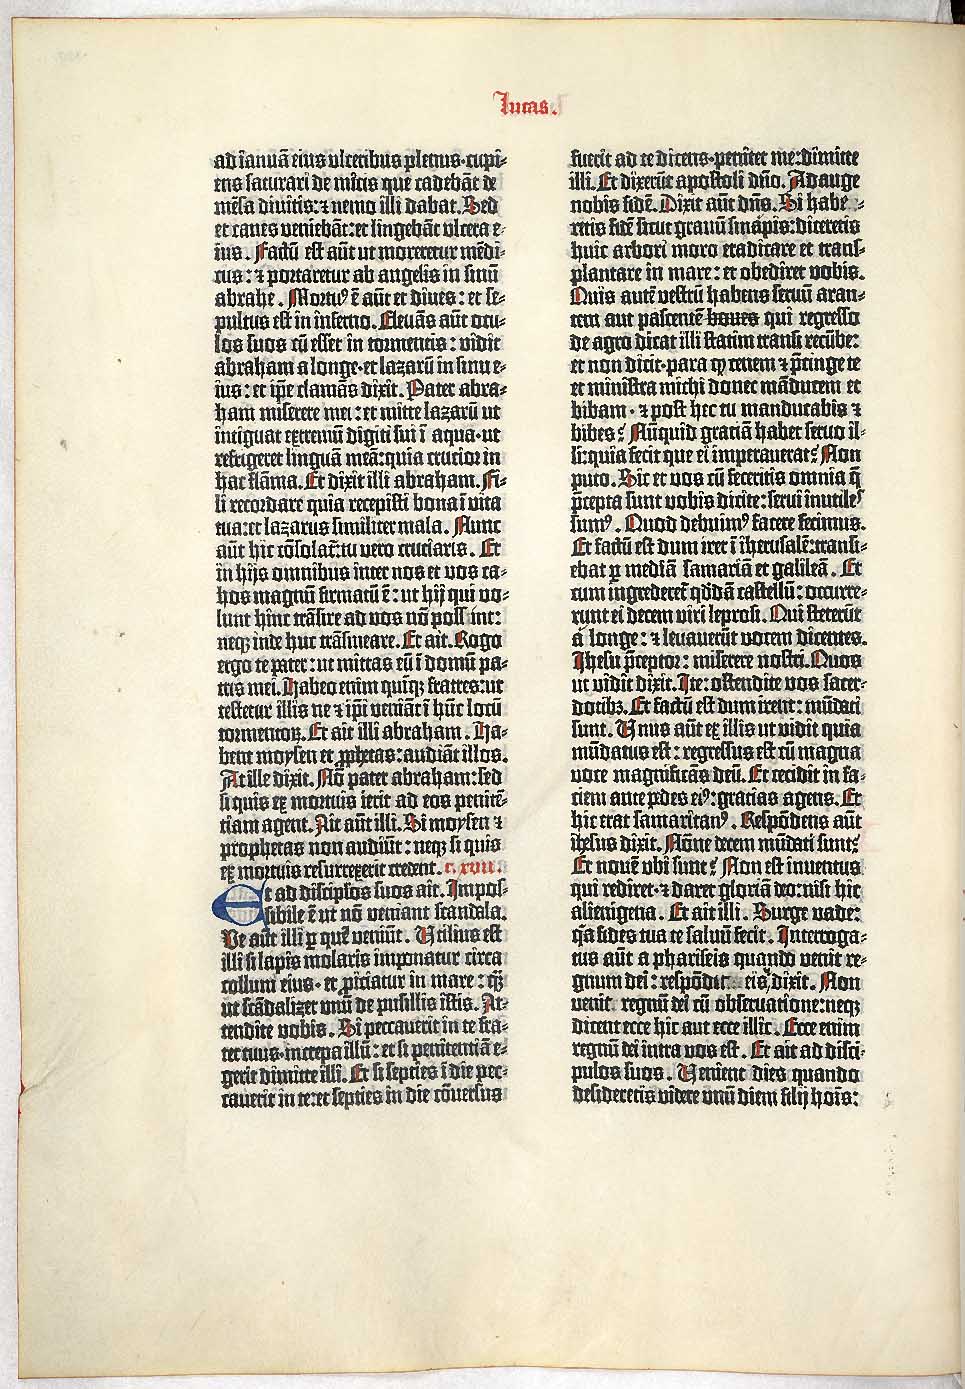 Lucas.
ad ianuā eius ulceribus plenus·cupi-
ens saturari de micis que cadebāt de
mēsa divitis:⁊ nemo illi dabat. Sed
et canes veniebāt: et lingebāt ulcera e-
ius. Factū est aūt ut moreretur mēdi-
cus: ⁊ portaretur ab angelis in sinū
abrahe. Mortuꝰ ē aūt et dives: et se-
pultus est in inferno. Elevās aūt ocu-
los suos cū esset in tormentis: vidit
abraham a longe·et lazarū in sinu e-
ius: et ip̄e clamās dixit. Pater abra-
ham miserere mei: et mitte lazarū ut
intiguat extremū digiti sui ī aqua·ut
refrigeret linguā meā: quia crucior in
hac flāma. Et dixit illi abraham. Fi-
li recordare quia recepisti bona ī vita
tua: et lazarus similiter mala. Nunc
aūt hic cōsolat̄: tu vero cruciaris. Et
in hijs omnibus inter nos et vos ca-
hos magnū firmatū ē: ut hij qui vo-
lunt hinc trāsire ad vos nō possint:
neqꝫ inde huc trāsmeare. Et ait. Rogo
ergo te pater: ut mittas eū ī domū pa-
tris mei. Habeo enim quīqꝫ fratres: ut
testetur illis ne ⁊ ip̄i veniāt ī hūc locū
tormentoꝝ. Et ait illi abraham. Ha-
bent moysen et ꝓphetas: audiāt illos.
At ille dixit. Nō pater abraham: sed
si quis ex mortuis ierit ad eos penitē-
tiam agent. Ait aūt illi. Si moysen ⁊
prophetas non audiūt: neqꝫ si quis
ex mortuis resurrexerit credent. c. xvii.
Et ad discip̄los suos ait. Impos-
sibile ē ut nō veniant scandala.
Ve aūt illi ꝑ quē veniūt. Utilius est
illi si lapis molaris imponatur circa
collum eius· et ꝓiciatur in mare: q̄ꝫ
ut scādalizet unū de pusillis istis. At-
tendite vobis. Si peccaverit in te fra-
ter tuus·increpa illū: et si penitentiā e-
gerit dimitte illi. Et si septies ī die pec-
caverit in te: et septies in die cōversus
fuerit ad te dicens·penitet me: dimitte
illi. Et dixerūt apostoli dn̄o. Adauge
nobis fidē. Dixit aūt dn̄s. Si habe-
retis fidē sicut granū sinapis: diceretis
huic arbori moro eradicare et trans-
plantare in mare: et obediret vobis.
Quis autē vestrū habens servū aran-
tem aut pascentē boves qui regresso
de agro dicat illi statim transi recūbe:
et non dicit·para qꝫ cenem ⁊ p̄cinge te
et ministra michi donec māducem et
bibam·⁊ post hec tu manducabis ⁊
bibes? Nūquid gratiā habet servo il-
li: quia fecit que ei imperaverat? Non
puto. Sic et vos cū feceritis omnia q̄
p̄cepta sunt vobis dicite: servi inutiles
sumꝰ. Quod debuimꝰ facere fecimus.
Et factū est dum iret ī iherusalē: transi-
ebat ꝑ mediā samariā et galileā. Et
cum ingrederet̄ qd̄dā castellū: occurre-
runt ei decem viri leprosi. Qui steterūt
a longe: ⁊ levaverūt vocem dicentes.
Ihesu p̄ceptor: miserere nostri. Quos
ut vidit dixit. Ite: ostendite vos sacer-
dotibꝫ. Et factū est dum irent: mūdati
sunt. Unus aūt ex illis ut vidit quia
mūdatus est: regressus est cū magna
voce magnificās deū. Et cecidit in fa-
ciem ante pedes eiꝰ: gracias agens. Et
hic erat samaritanꝰ. Respōdens aūt
ih̄esus dixit. Nōne decem mūdati sunt?
Et novē ubi sunt? Non est inventus
qui rediret·⁊ daret gloriā deo: nisi hic
alienigena. Et ait illi. Surge vade:
q̄a fides tua te salvū fecit. Interroga-
tus aūt a phariseis quando venit re-
gnum dei: respōdit eis, dixit. Non
venit regnū dei cū observatione: neqꝫ
dicent ecce hic aut ecce illic. Ecce enim
regnū dei intra vos est. Et ait ad disci-
pulos suos. Venient dies quando
desideretis videre unū diem filij hoīs: